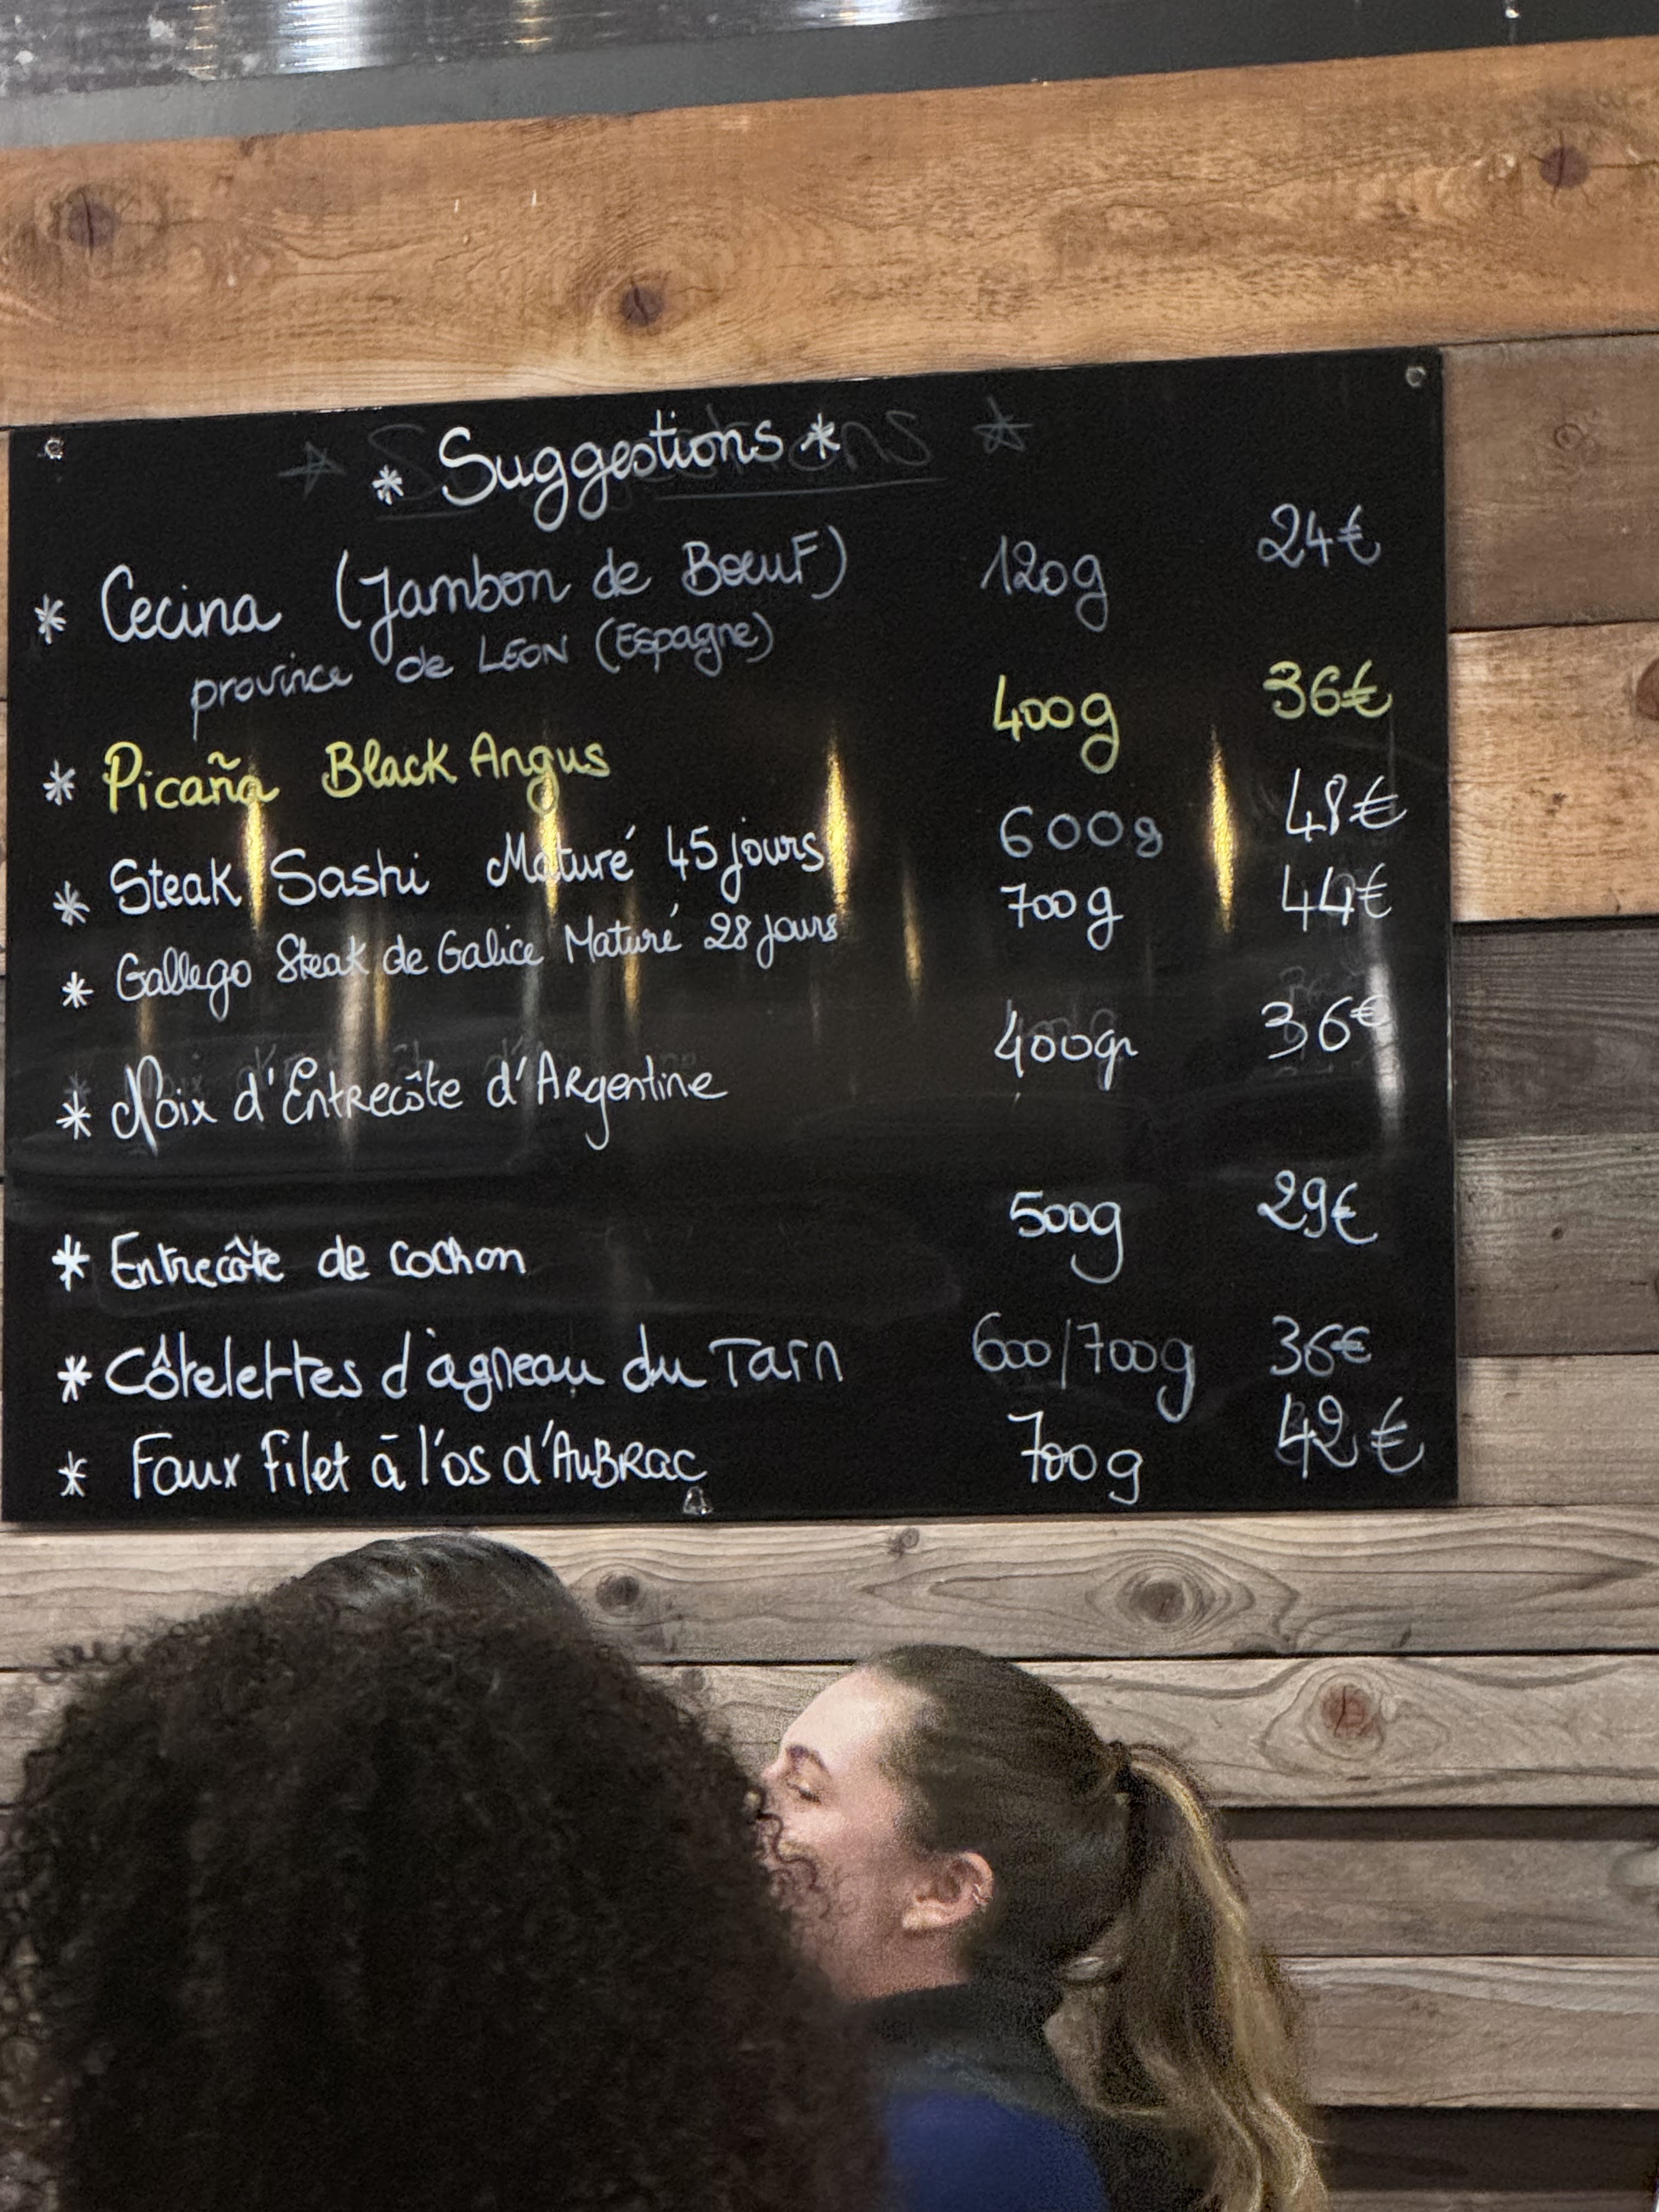 * Suggestions *
* Cecina (Jambon de BœuF) 120g 24€
province de LEON (Espagne)
* Picaña Black Angus 400g 36€
* Steak Sashi Maturé 45 jours 600g 48€
* Gallego Steak de Galice Maturé 28 jours 700g 44€
* Noix d'Entrecôte d'Argentine 400gr 36€
* Entrecôte de cochon 500g 29€
* Côtelettes d'agneau du Tarn 600/700g 36€
* Faux filet à l'os d'AuBRac 700g 42€